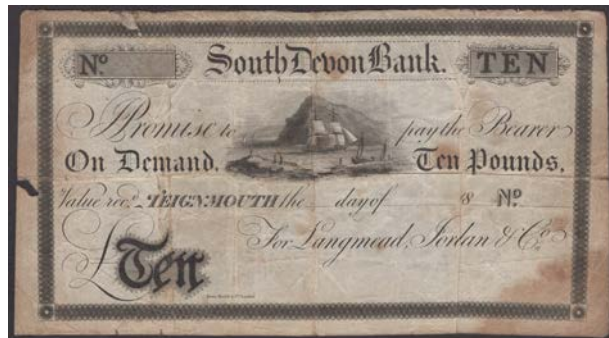 No South Devon Bank. TEN
I Promise to pay the Bearer
On Demand, Ten Pounds,
Value recd. TEIGNMOUTH the day of 18 No
For Langmead, Jordan & Co.
£Ten